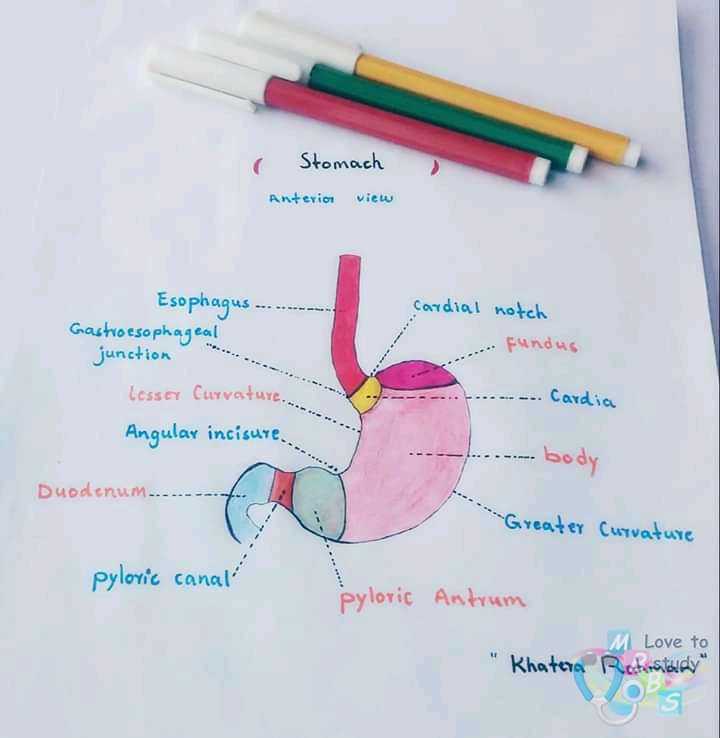 ( Stomach )
Anterior view
Esophagus
Cardial notch
Gastroesophageal
junction
Fundus
Lesser Curvature
Cardia
Angular incisure
body
Duodenum
Greater Curvature
pyloric canal
pyloric Antrum
M Love to
"Khatera Rahman"
study
B
S